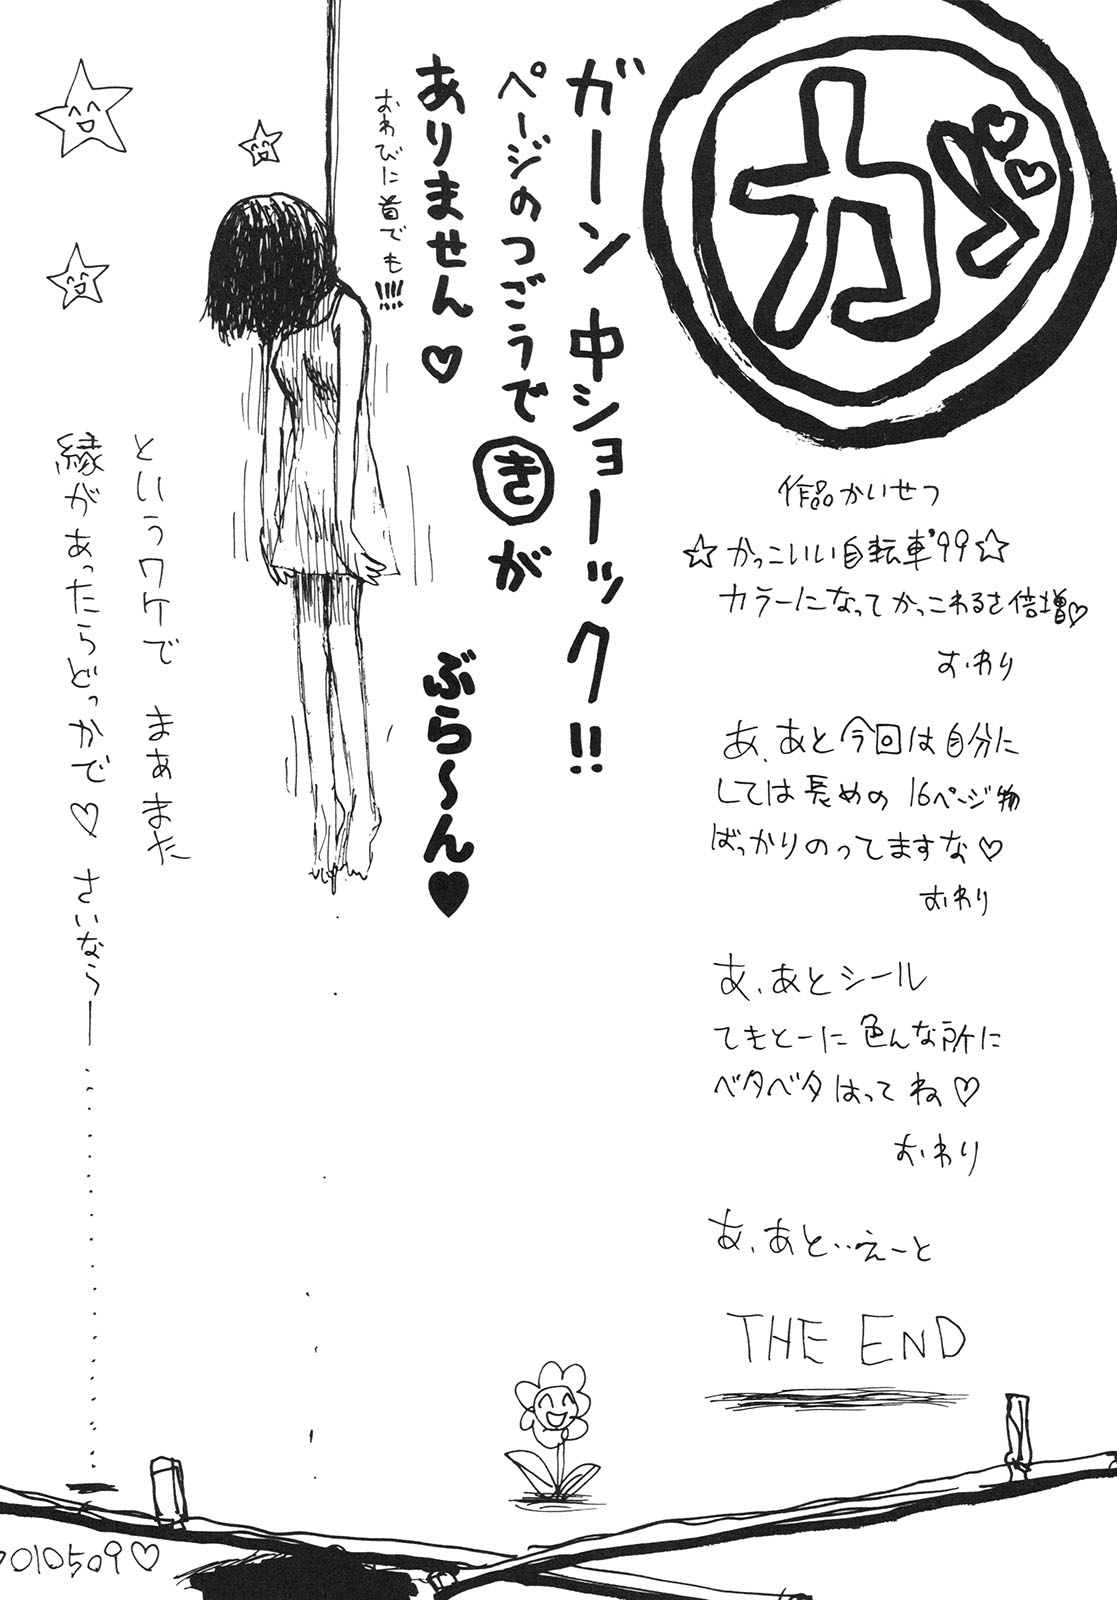 が
作品かいせつ
☆かっこいい自転車'99☆
カラーになってかっこわるさ倍増♡
おわり
あ、あと今回は自分に
しては長めの16ページ物
ばっかりのってますな♡
おわり
あ、あとシール
てきとーに色んな所に
ベタベタはってね♡
おわり
あ、あと‥えーと
THE END
ガーン中ショーック!!
ページのつごうできが
ありません♡
おわびに首でも!!!!
ぶら〜ん♥
というワケで まぁまた
縁があったらどっかで♡ さいならー
010509♡